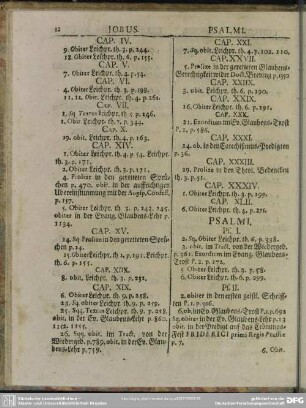 12 JOBUS. PSALMI.
CAP. IV.
9. Obiter Leichpr. th. 3. p. 244.
18. Obiter Leichpr. th. 6. p. 155.
CAP. V.
7. Obiter Leichpr. th. 4. p. 54.
CAP. VI.
4. Obiter Leichpr. th. 3. p. 198.
11. 12. Obit. Leichpr. th. 4. p. 261.
CAP. VII.
1. Sq Textus Leichpr. th 5. p. 246.
1. Obit. Leichpr. th. 7. p. 344.
CAP. X.
19. obit. Leichpr. th. 4. p. 163.
CAP. XIV.
1. Obiter Leichpr. th. 4. p. 54. Leichpr.
th. 3. p. 171.
2. Obiter Leichpr. th. 3. p. 171.
4. Fusius in den geretteten Sprüchen
p. 470. obit. in der auffrichtigen
Ubereinstimmung mit der Augsp. Confess.
p. 157.
5. Obiter Leichpr. th 3. p. 242. 245.
obiter in der Evang. Glaubens-Lehr p.
1194.
CAP. XV.
14. Sq Fusius in den geretteten Sprüchen
p. 24.
15 Obiter Leichpr. th. 2. p. 191. Leichpr.
th. 6. p. 155.
CAP. XIIX.
8. obit. Leichpr. th 3. p. 232.
CAP. XIX.
6. Obiter Leichpr. th 9. p. 258.
23. Sq obiter Leichpr. th. 9. p. 259.
25. Sqq. Textus Leichpr. th 9. p. 258.
obit. in der Ev. Glaubens-Lehr p. 860.
1352. 1355.
26. Sqq. obit. im Tract. von der
Wiedergeb. p. 789. obit. in der Ev. Glaubens-Lehr
p. 759.
CAP. XXI.
7. Sq. obit. Leichpr. th. 4. p. 102. 110.
CAP. XXVII.
5. Fusius in der geretteten Glaubens-
Gerechtigkeit wider Doct. Brevung p. 950
CAP. XXIIX.
3. obiter Leichpr. th. 6. p. 190.
CAP. XXIX.
16. Obiter Leichpr. th 6. p. 191.
CAP. XXX.
21. Exordium im Ev. Glaubens-Trost
P. 2. p. 586.
CAP. XXXI.
24. ob. in den Catechismus-Predigten
p. 36.
CAP. XXXIII.
29. Fusius in den Theol. Bedencken
th. 3. p. 751.
CAP. XXXIV.
1. Obiter Leichpr. th 3. p. 199.
CAP. XLII.
6. Obiter Leichpr. th. 4. p. 251.
PSALMI.
Ps. I.
2. Sq. Obiter Leichpr. th 6. p. 338.
3. obit. im Tract. von der Wiedergeb.
p. 361. Exordium im Evang. Glaubens-
Trost P. 2. p. 172.
5. Obiter Leichpr. th 3. p. 58.
6. Obiter Leichpr. th 6. p. 299.
Ps. II.
2. obiter in den ersten geistl. Schrifften
P. 1. p. 916.
6. ob. im Ev. Glaubens-Trost P. 2. p. 692
Sq. obiter in der Ev. Glaubens-Lehr p. 13
obit. in der Predigt auf das Crönungs-
Fest FRIDERICI primi Regis Prussiæ
p. 7.
6. Obit.